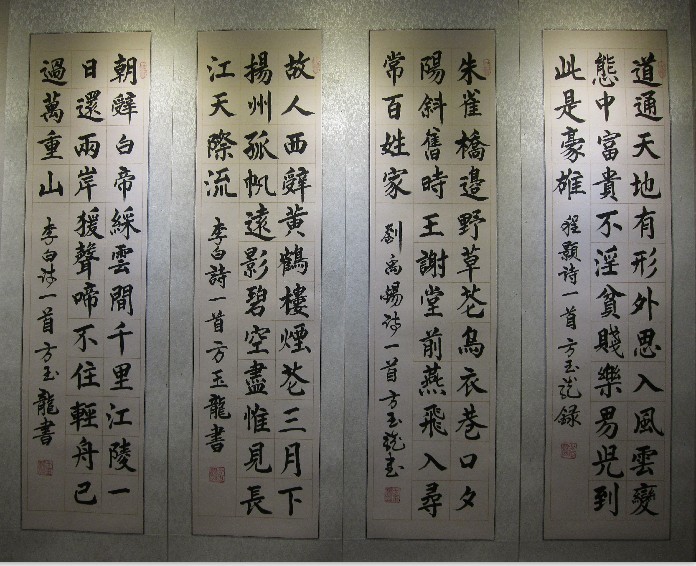 道通天地有形外思入風雲變
態中富貴不淫貧賤樂男兒到
此是豪雄 程顥詩一首方玉龍錄
朱雀橋邊野草花烏衣巷口夕
陽斜舊時王謝堂前燕飛入尋
常百姓家 劉禹錫詩一首方玉龍書
故人西辭黃鶴樓煙花三月下
揚州孤帆遠影碧空盡惟見長
江天際流 李白詩一首方玉龍書
朝辭白帝綵雲間千里江陵一
日還兩岸猨聲啼不住輕舟已
過萬重山 李白詩一首方玉龍書